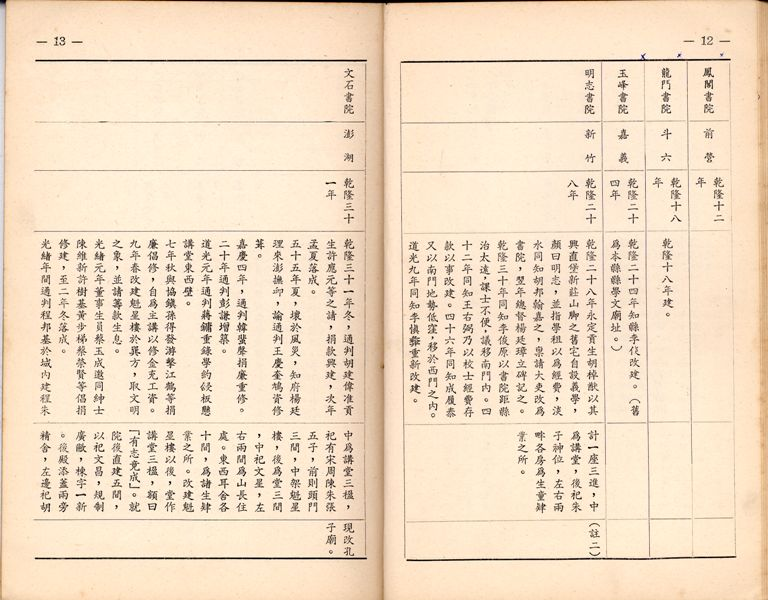 — 12 —
鳳閣書院
前營
乾隆十二
年
龍門書院
斗六
乾隆十八
年
乾隆十八年建。
玉峰書院
嘉義
乾隆二十
四年
乾隆二十四年知縣李倓改建。（舊
爲本縣縣學文廟址。）
明志書院
新竹
乾隆二十
八年
乾隆二十八年永定貢生胡焯猷以其
興直堡新莊山脚之舊宅自設義學，
顏曰明志，並指學租以爲經費，淡
水同知胡邦翰嘉之，稟請大吏改爲
書院，翌年總督楊廷璋立碑記之。
乾隆三十年同知李俊原以書院距縣
治太遠，課士不便，議移南門內。四
十二年同知王右弼乃以校士經費存
款以事改建。四十六年同知成履泰
又以南門地勢低窪，移於西門之內。
道光九年同知李慎彝重新改建。
計一座三進，中
爲講堂，後祀朱
子神位，左右兩
畔各房爲生童肄
業之所。
（註二）
— 13 —
文石書院
澎湖
乾隆三十
一年
乾隆三十一年冬，通判胡建偉准貢
生許應元等之請，捐款興建，次年
孟夏落成。
五十五年夏，壞於風災，知府楊廷
理來澎撫卹，諭通判王慶奎鳩資修
葺。
嘉慶四年，通判韓蜚聲捐廉重修。
二十年通判彭謙增築。
道光元年通判蔣鏞重錄學約役板懸
講堂東西壁。
七年秋與協鎮孫得發游擊江鶴等捐
廉倡修，自爲主講以修金充工資。
九年春改建魁星樓於巽方，取文明
之象，並請籌款生息。
光緒元年董事生員蔡玉成邀同紳士
陳維新許樹基黃步梯蔡榮賢等倡捐
修建，至二年冬落成。
光緒年間通判程邦基於城內建程朱
中爲講堂三楹，
祀有宋周陳朱張
五子，前則頭門
三間，中架魁星
樓，後爲堂三間
，中祀文星，左
右兩間爲山長住
處。東西耳舍各
十間，爲諸生肄
業之所。改建魁
星樓以後，堂作
講堂三楹，額曰
「有志竟成」。就
院後直建五間，
以祀文昌，規制
廣敞，棟宇一新
。後殿添蓋兩旁
精舍，左邊祀胡
現改孔
子廟。